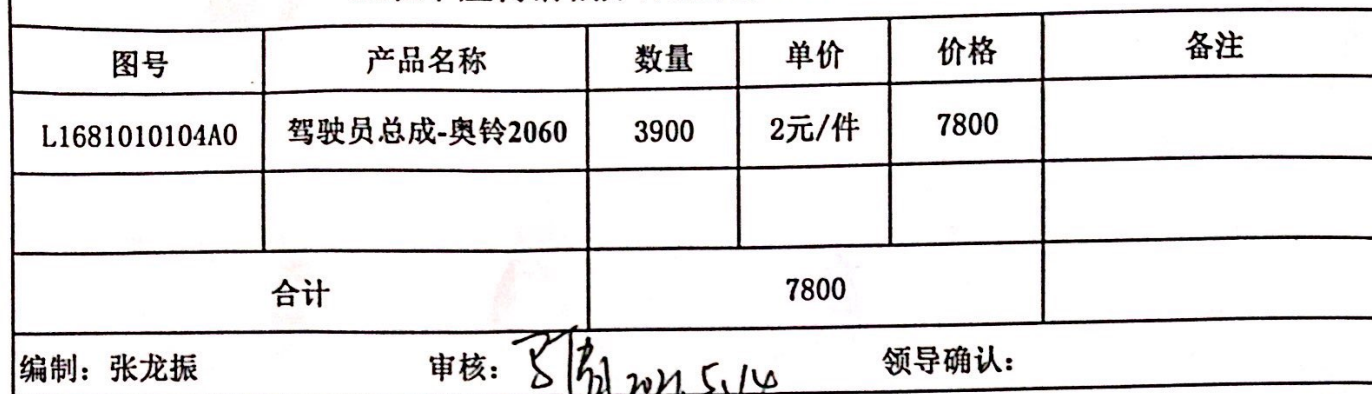 图号 产品名称 数量 单价 价格 备注
L1681010104A0 驾驶员总成-奥铃2060 3900 2元/件 7800
合计 7800
编制：张龙振 审核： 2021.5.14 领导确认：